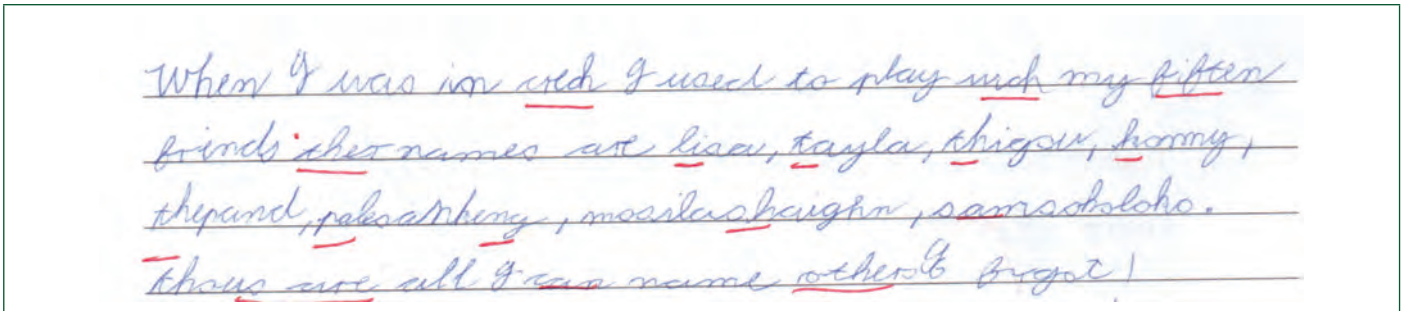 When I was in crech I used to play wich my fiften
friends ther names are lisa, tayla, thigou, hommy,
thepand, palesa theng, mosilashaughn, samsoholoho.
thous are all I can name others I forgot!